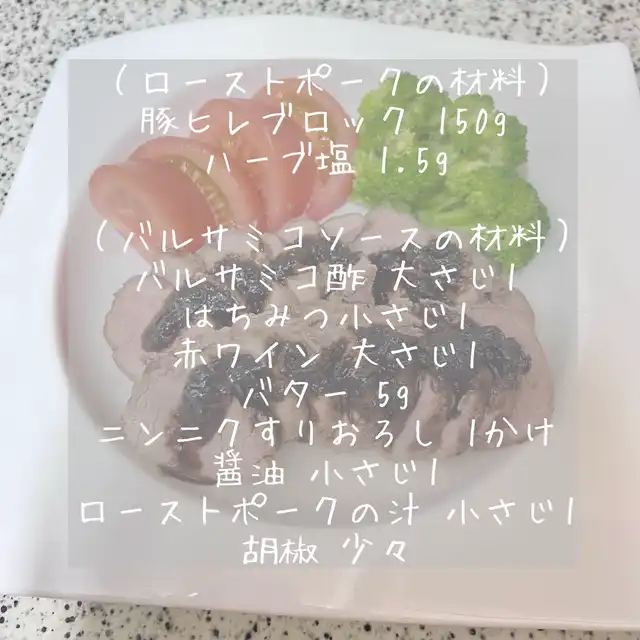 (ローストポークの材料)
豚ヒレブロック 150g
ハーブ塩 1.5g
(バルサミコソースの材料)
バルサミコ酢 大さじ1
はちみつ小さじ1
赤ワイン 大さじ1
バター 5g
ニンニクすりおろし 1かけ
醤油 小さじ1
ローストポークの汁 小さじ1
胡椒 少々